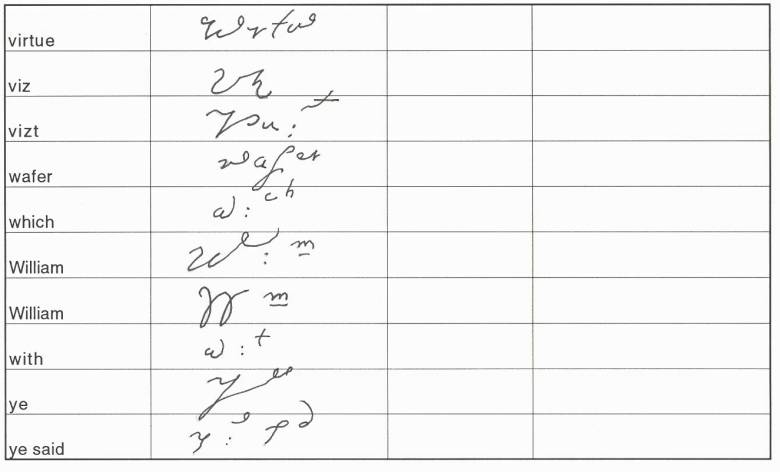 virtue
viz
vizt
wafer wafer
which w:ch
William W:m
William Wm
with w:t
ye ye
ye said y:e sd